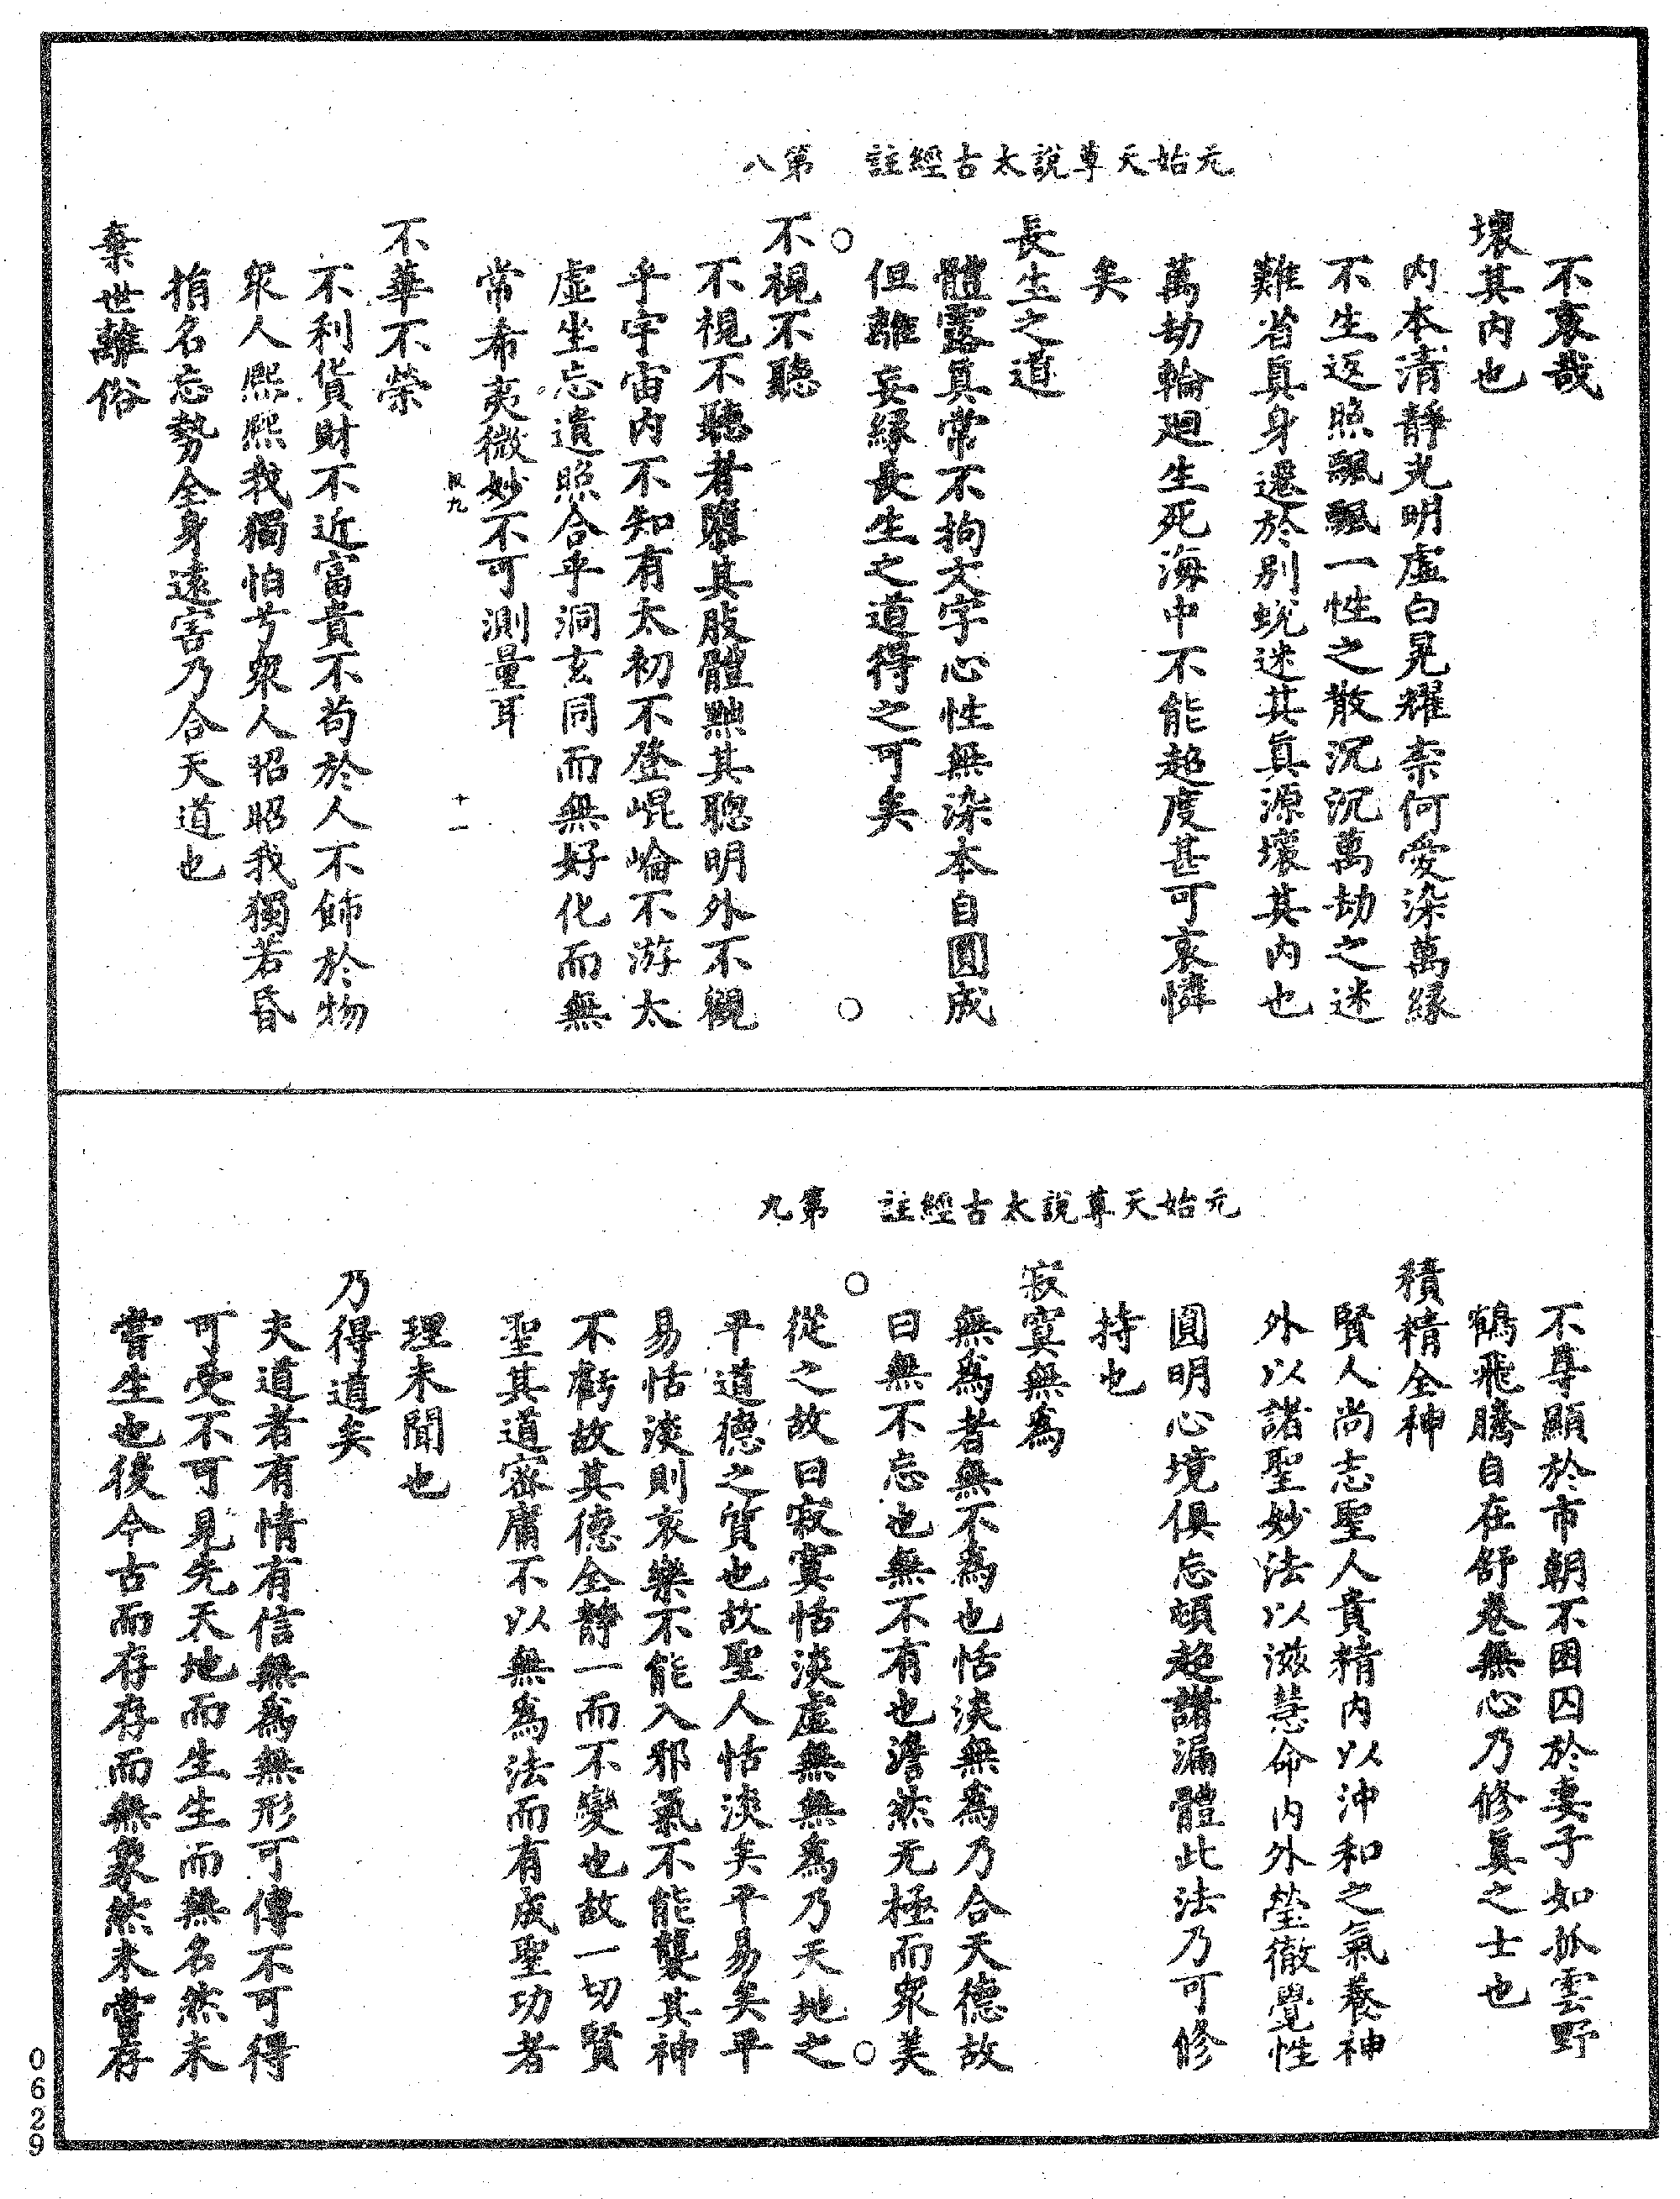 元始天尊說太古經註　第八
不哀哉
壞其内也
内本清靜光明虛白晃耀柰何愛染萬緣
不生返照飄飄一性之散沉沉萬劫之迷
難省真身還於別蛻迷其真源壞其内也
萬劫輪廻生死海中不能超度甚可哀憐
矣
長生之道
體露真常不拘文字心性無染本自圓成
但離妄緣長生之道得之可矣
○　○
不視不聽
不視不聽者隳其肢體黜其聰明外不觀
乎宇宙内不知有太初不登崐崘不游太
虛坐忘遺照合乎洞玄同而無好化而無
常希夷微妙不可測量耳
九　十一
不華不榮
不利貨財不近富貴不苟於人不飾於物
衆人熙熙我獨怕兮衆人昭昭我獨若昏
捐名忘勢全身遠害乃合天道也
棄世離俗
元始天尊說太古經註　第九
不尊顯於市朝不困囚於妻子如孤雲野
鶴飛騰自在舒卷無心乃修真之士也
積精全神
賢人尚志聖人貴精内以沖和之氣養神
外以諸聖妙法以滋慧命内外瑩徹覺性
圓明心境俱忘頓超諸漏體此法乃可修
持也
寂寞無為
無為者無不為也恬淡無為乃合天德故
曰無不忘也無不有也澹然无極而衆美
○　○
從之故曰寂寞恬淡虛無無為乃天地之
平道德之質也故聖人恬淡矣平易矣平
易恬淡則哀樂不能入邪氣不能襲其神
不虧故其德全靜一而不變也故一切賢
聖其道密庸不以無為法而有成聖功者
理未聞也
乃得道矣
夫道者有情有信無為無形可傳不可得
可受不可見先天地而生生而無名然未
嘗生也後今古而存存而無象然未嘗存
0629